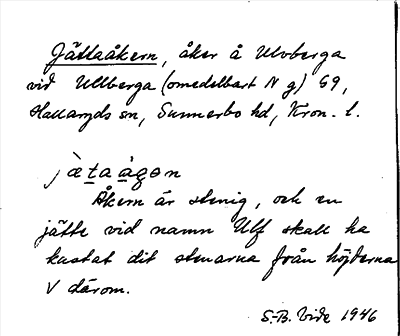 Jättaåkern, åker å Ulvberga
vid Ullberga (omedelbart N g) S9,
Hallaryds sn, Sunnerbo hd, Kron. l.
jä̀taàgən
Åkern är stenig, och en
jätte vid namn Ulf skall ha
kastat dit stenarna från höjderna
V därom.
S.-B. Vide 1946